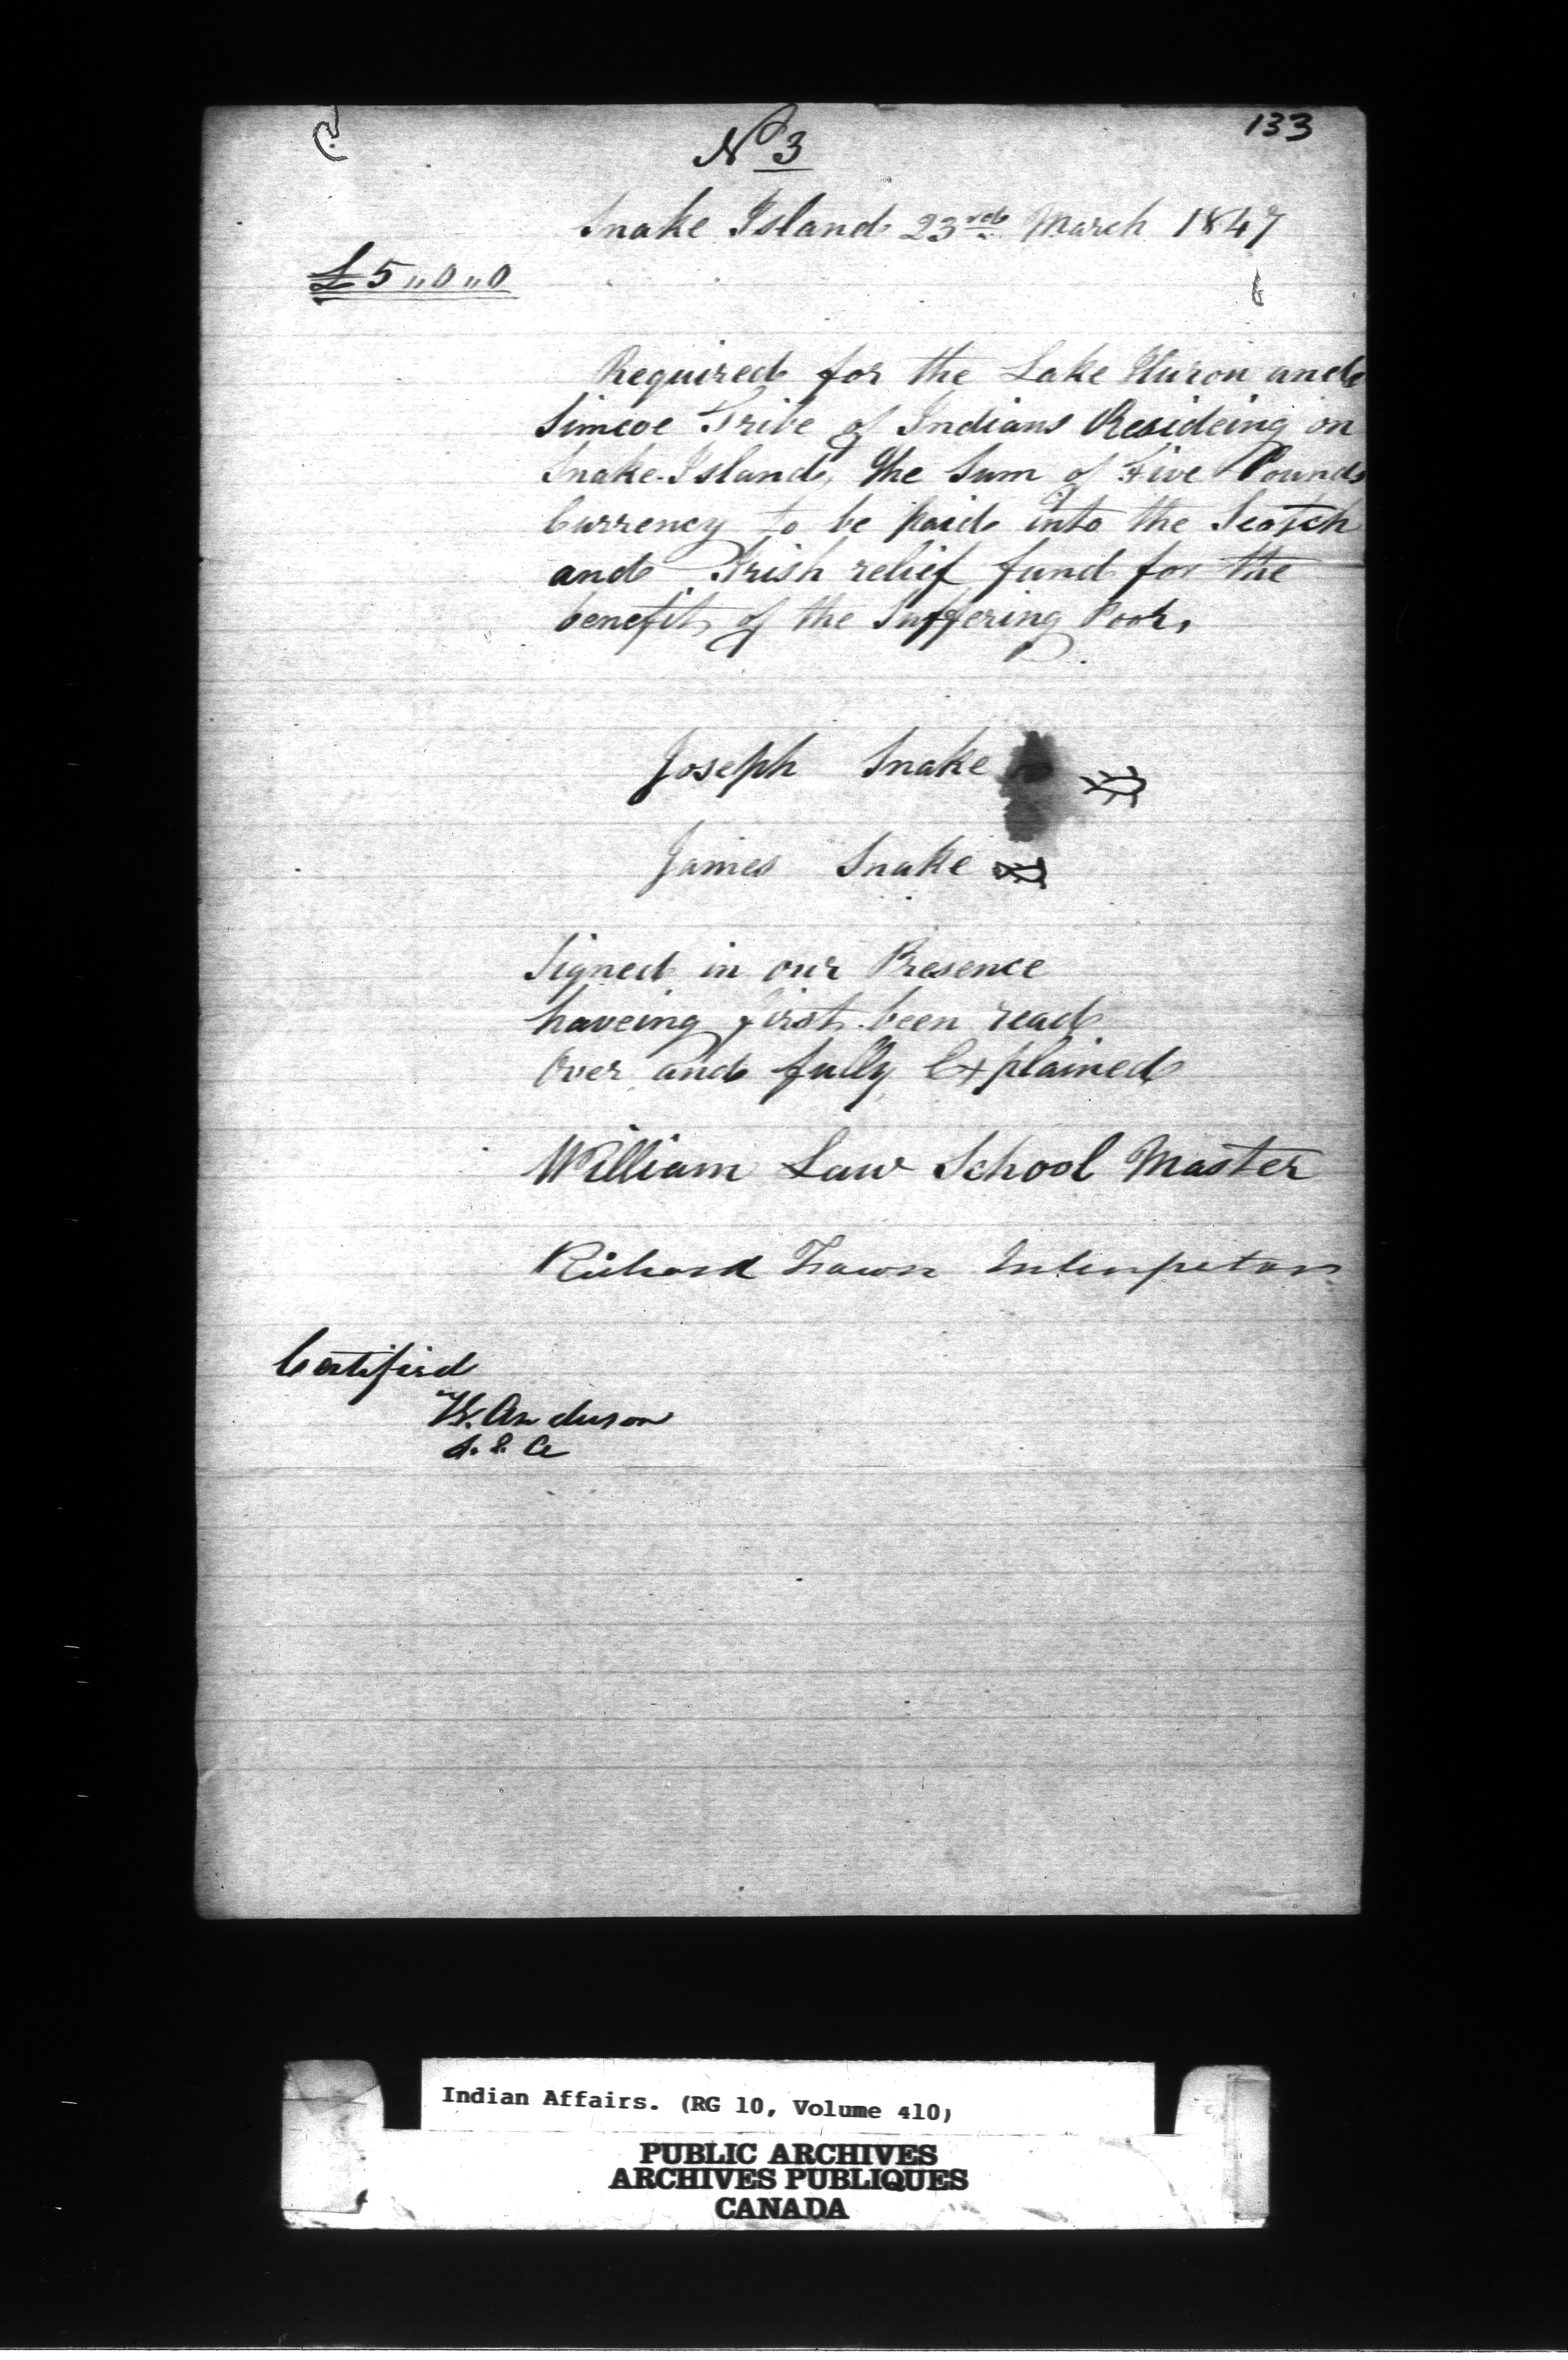 133
No 3
Snake Island 23rd March 1847
£5,,0,,0
Required for the Lake Huron and
Simcoe Tribe of Indians Resideing on
Snake Island, the Sum of Five Pounds
Currency to be paid into the Scotch
and Irish relief fund for the
benefit of the Suffering Poor,
Joseph Snake
James Snake
Signed in our Presence
haveing first been read
Over and fully Explained
William Law School Master
Richard Interpetor
Certified
Anderson
Indian Affairs. (RG 10, Volume 410)
PUBLIC ARCHIVES
ARCHIVES PUBLIQUES
CANADA